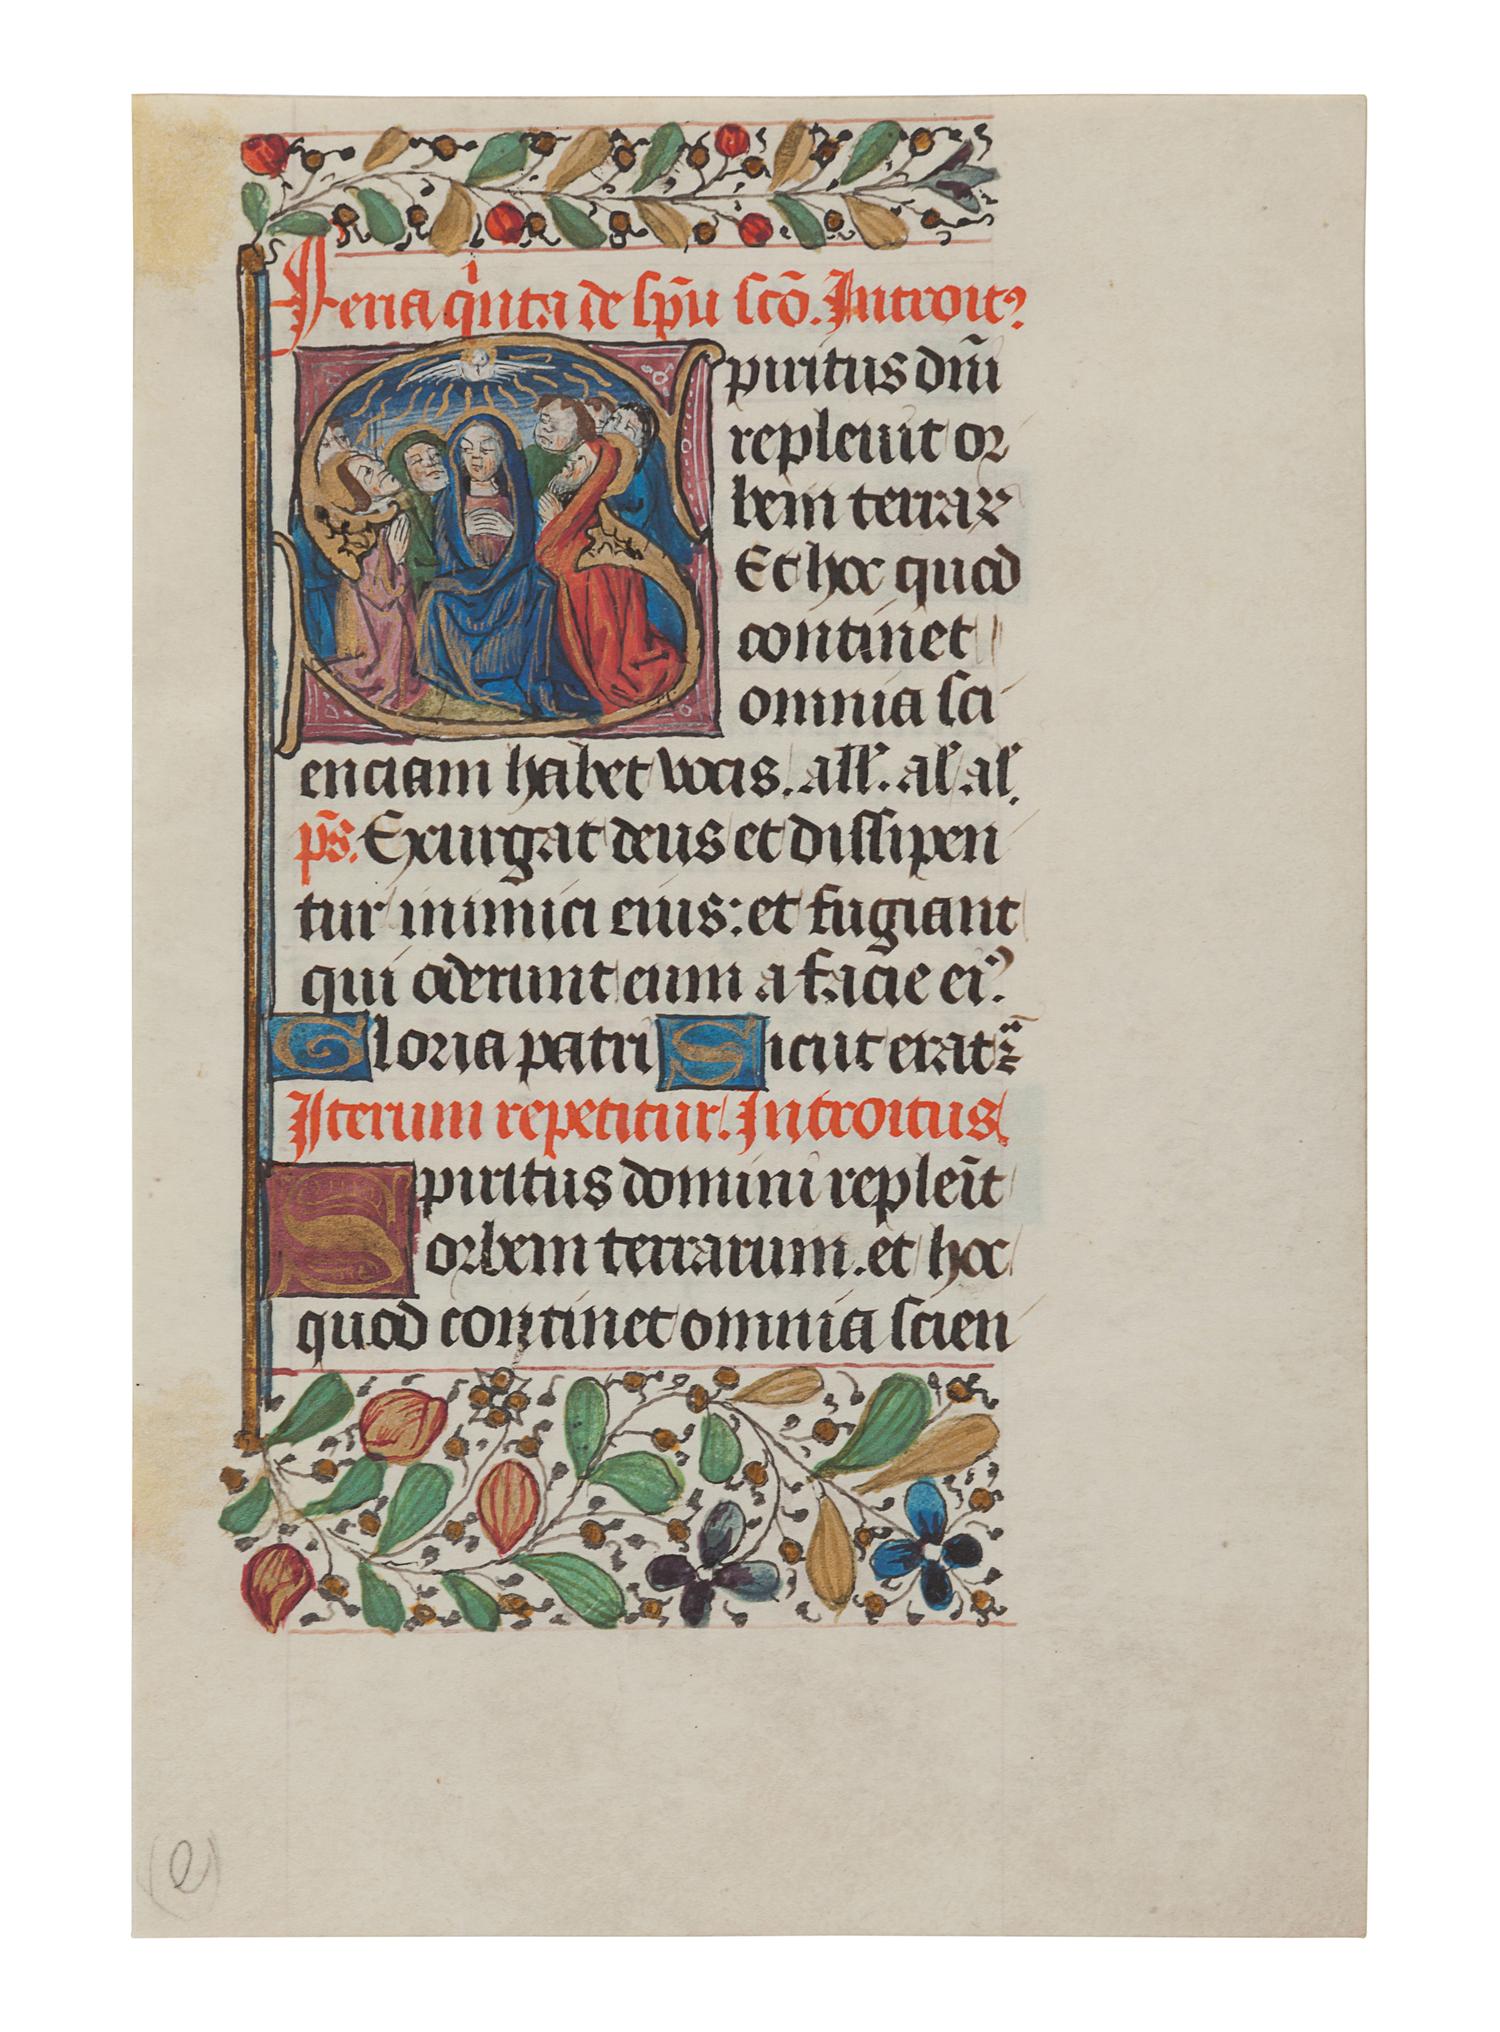 Feria qⁱnta de sp̄u sc̄o. Introitꝰ
Spiritus dn̄i
repleuit or
bem terraꝝ
Et hoc quod
continet
omnia sci
enciam habet vocis. all'. al' al'.
p̄s. Exurgat deus et dissipen
tur inimici eius: et fugiant
qui oderunt eum a facie eiꝰ.
Gloria patri Sicut erat
Iterum repetitur. Introitus
Spiritus domini repleīt
orbem terrarum. et hoc
quod continet omnia scien
(e)